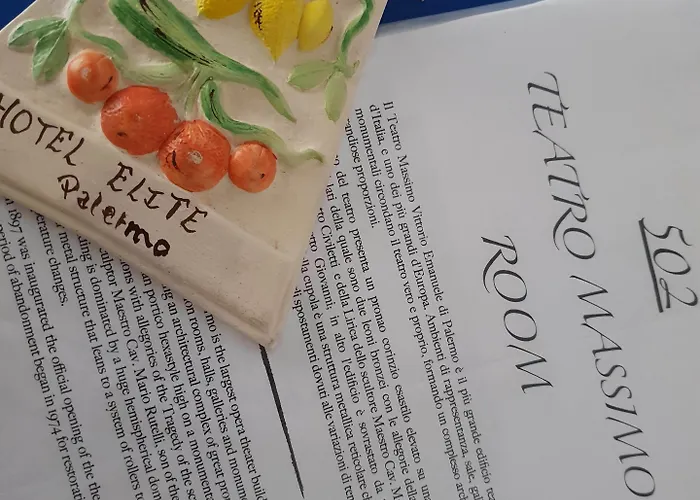 HOTEL ELITE
Palermo
502
TEATRO MASSIMO
ROOM
Il Teatro Massimo Vittorio Emanuele di Palermo è il più grande edificio
d'Italia, e uno dei più grandi d'Europa. Ambienti di rappresentanza, sale,
monumentali circondano il teatro vero e proprio, formando un complesso
andiose proporzioni.
del teatro presenta un pronao corinzio esastilo elevato su
lati della quale sono due leoni bronzei con le allegorie
Civiletti e della Lirica dello scultore Maestro Cav. M
Giovanni. in alto l'edificio è sovrastato da
cupola è una struttura metallica reticolare
spostamenti dovuti alle variazioni di
mo is the largest opera theater
on rooms, halls, galleries and
an architectural complex of great
portico hexastyle high on a
ons with allegories of the Tragedy of the
ulptor Maestro Cav. Mario Rutelli, son of the
ing is dominated by a huge hemispherical
metal structure that leans to a system of rollers
erature changes.
1897 was inaugurated the official opening of the
period of abandonment began in 1974 for